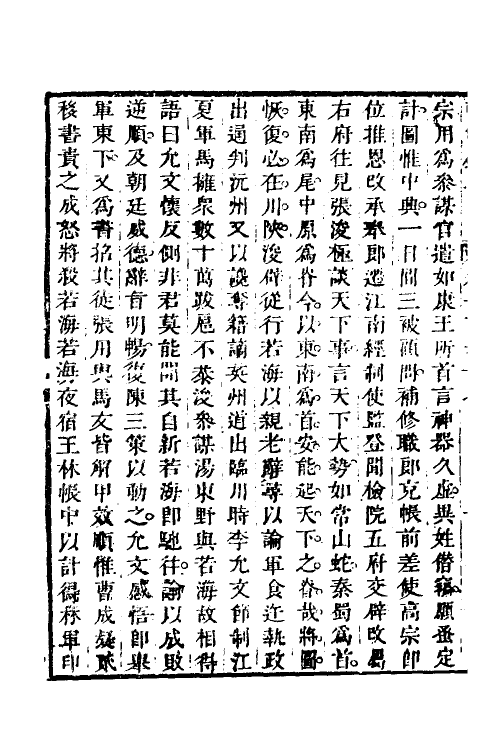 宗用爲參謀官遣如康王所首言神器久虛異姓僭竊願蚤定
計圖惟中興一日閒三被顧問補修職郎充帳前差使高宗卽
位推恩改承奉郎遷江南經制使監登聞檢院五府交辟改爲
右府往見張浚極談天下事言天下大勢如常山蛇秦蜀爲首
東南爲尾中原爲脊今以東南爲首安能起天下之脊哉將圖
恢復必在川陝浚辟從行若海以親老辭尋以論軍食迕執政
出通判沅州又以誤奪籍謫英州道出臨川時李允文節制江
夏軍馬擁衆數十萬跋扈不恭浚參謀湯東野與若海故相得
語曰允文懷反側非君莫能開其自新若海卽馳往諭以成敗
逆順及朝廷威德辭旨明暢復陳三策以動之允文感悟卽舉
軍東下又爲書招其徒張用與馬友皆解甲效順惟曹成疑
移書責之成怒將殺若海若海夜宿王林帳中以計得林軍印